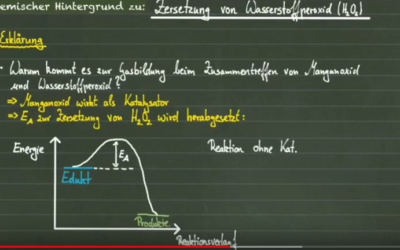 emischer Hintergrund zu: Zersetzung von Wasserstoffperoxid (H₂O₂)
Erklärung
• Warum kommt es zur Gasbildung beim Zusammentreffen von Manganoxid
und Wasserstoffperoxid?
⇒ Manganoxid wirkt als Katalysator
⇒ E_A zur Zersetzung von H₂O₂ wird herabgesetzt:
Energie
Reaktion ohne Kat.
E_A
Edukt
Produkte
Reaktionsverlauf